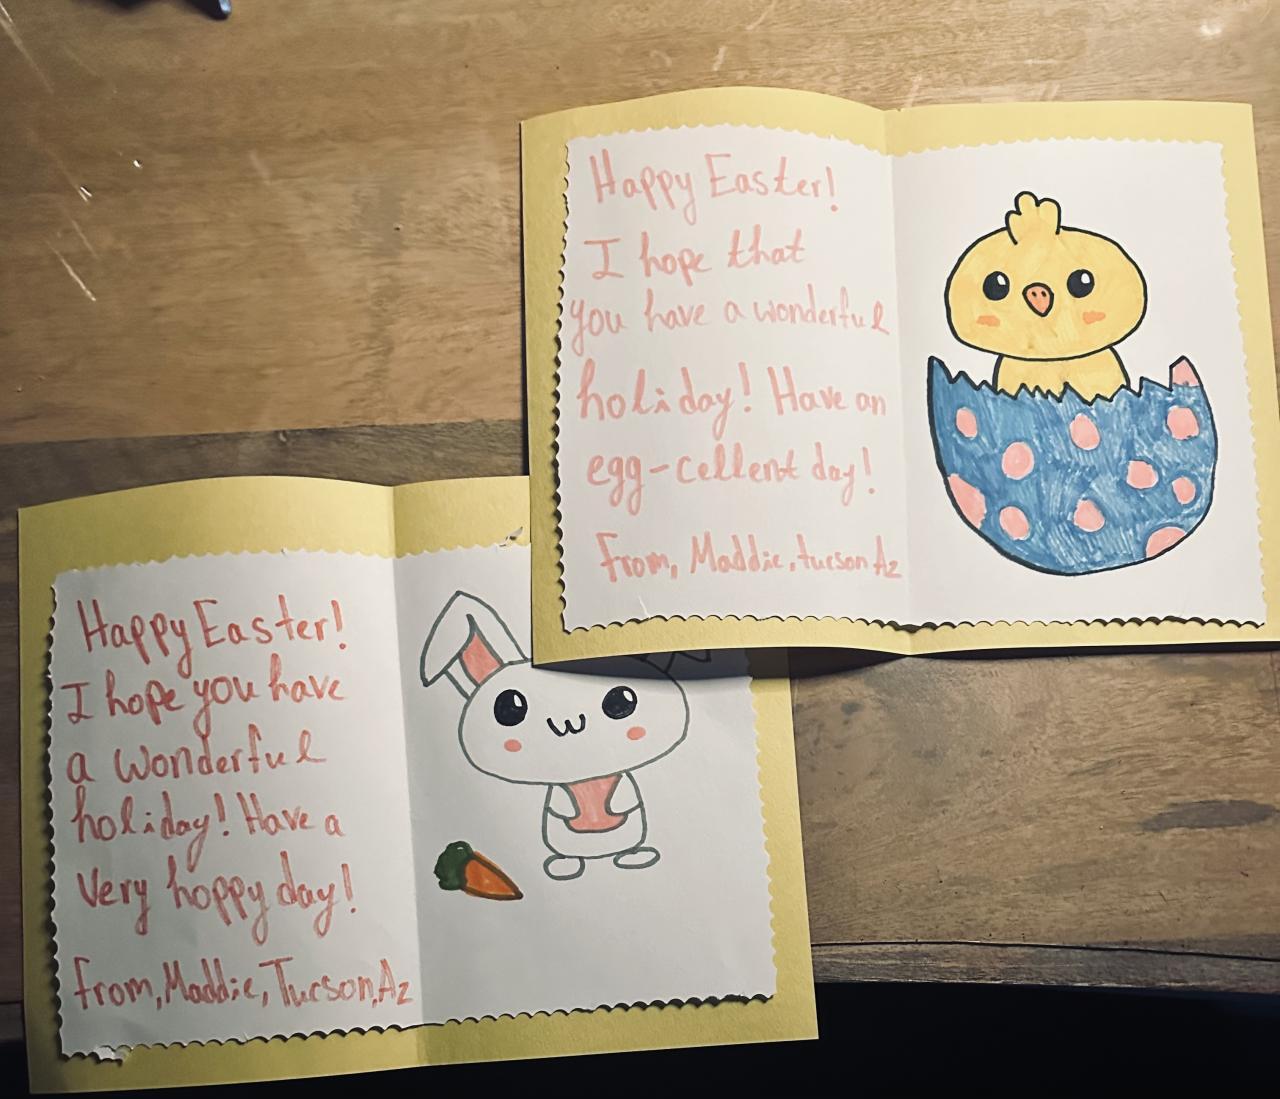 Happy Easter!
I hope that
you have a wonderful
holiday! Have an
egg-cellent day!
From, Maddie, tucson Az
Happy Easter!
I hope you have
a wonderful
holiday! Have a
very hoppy day!
From, Maddie, Tucson, Az